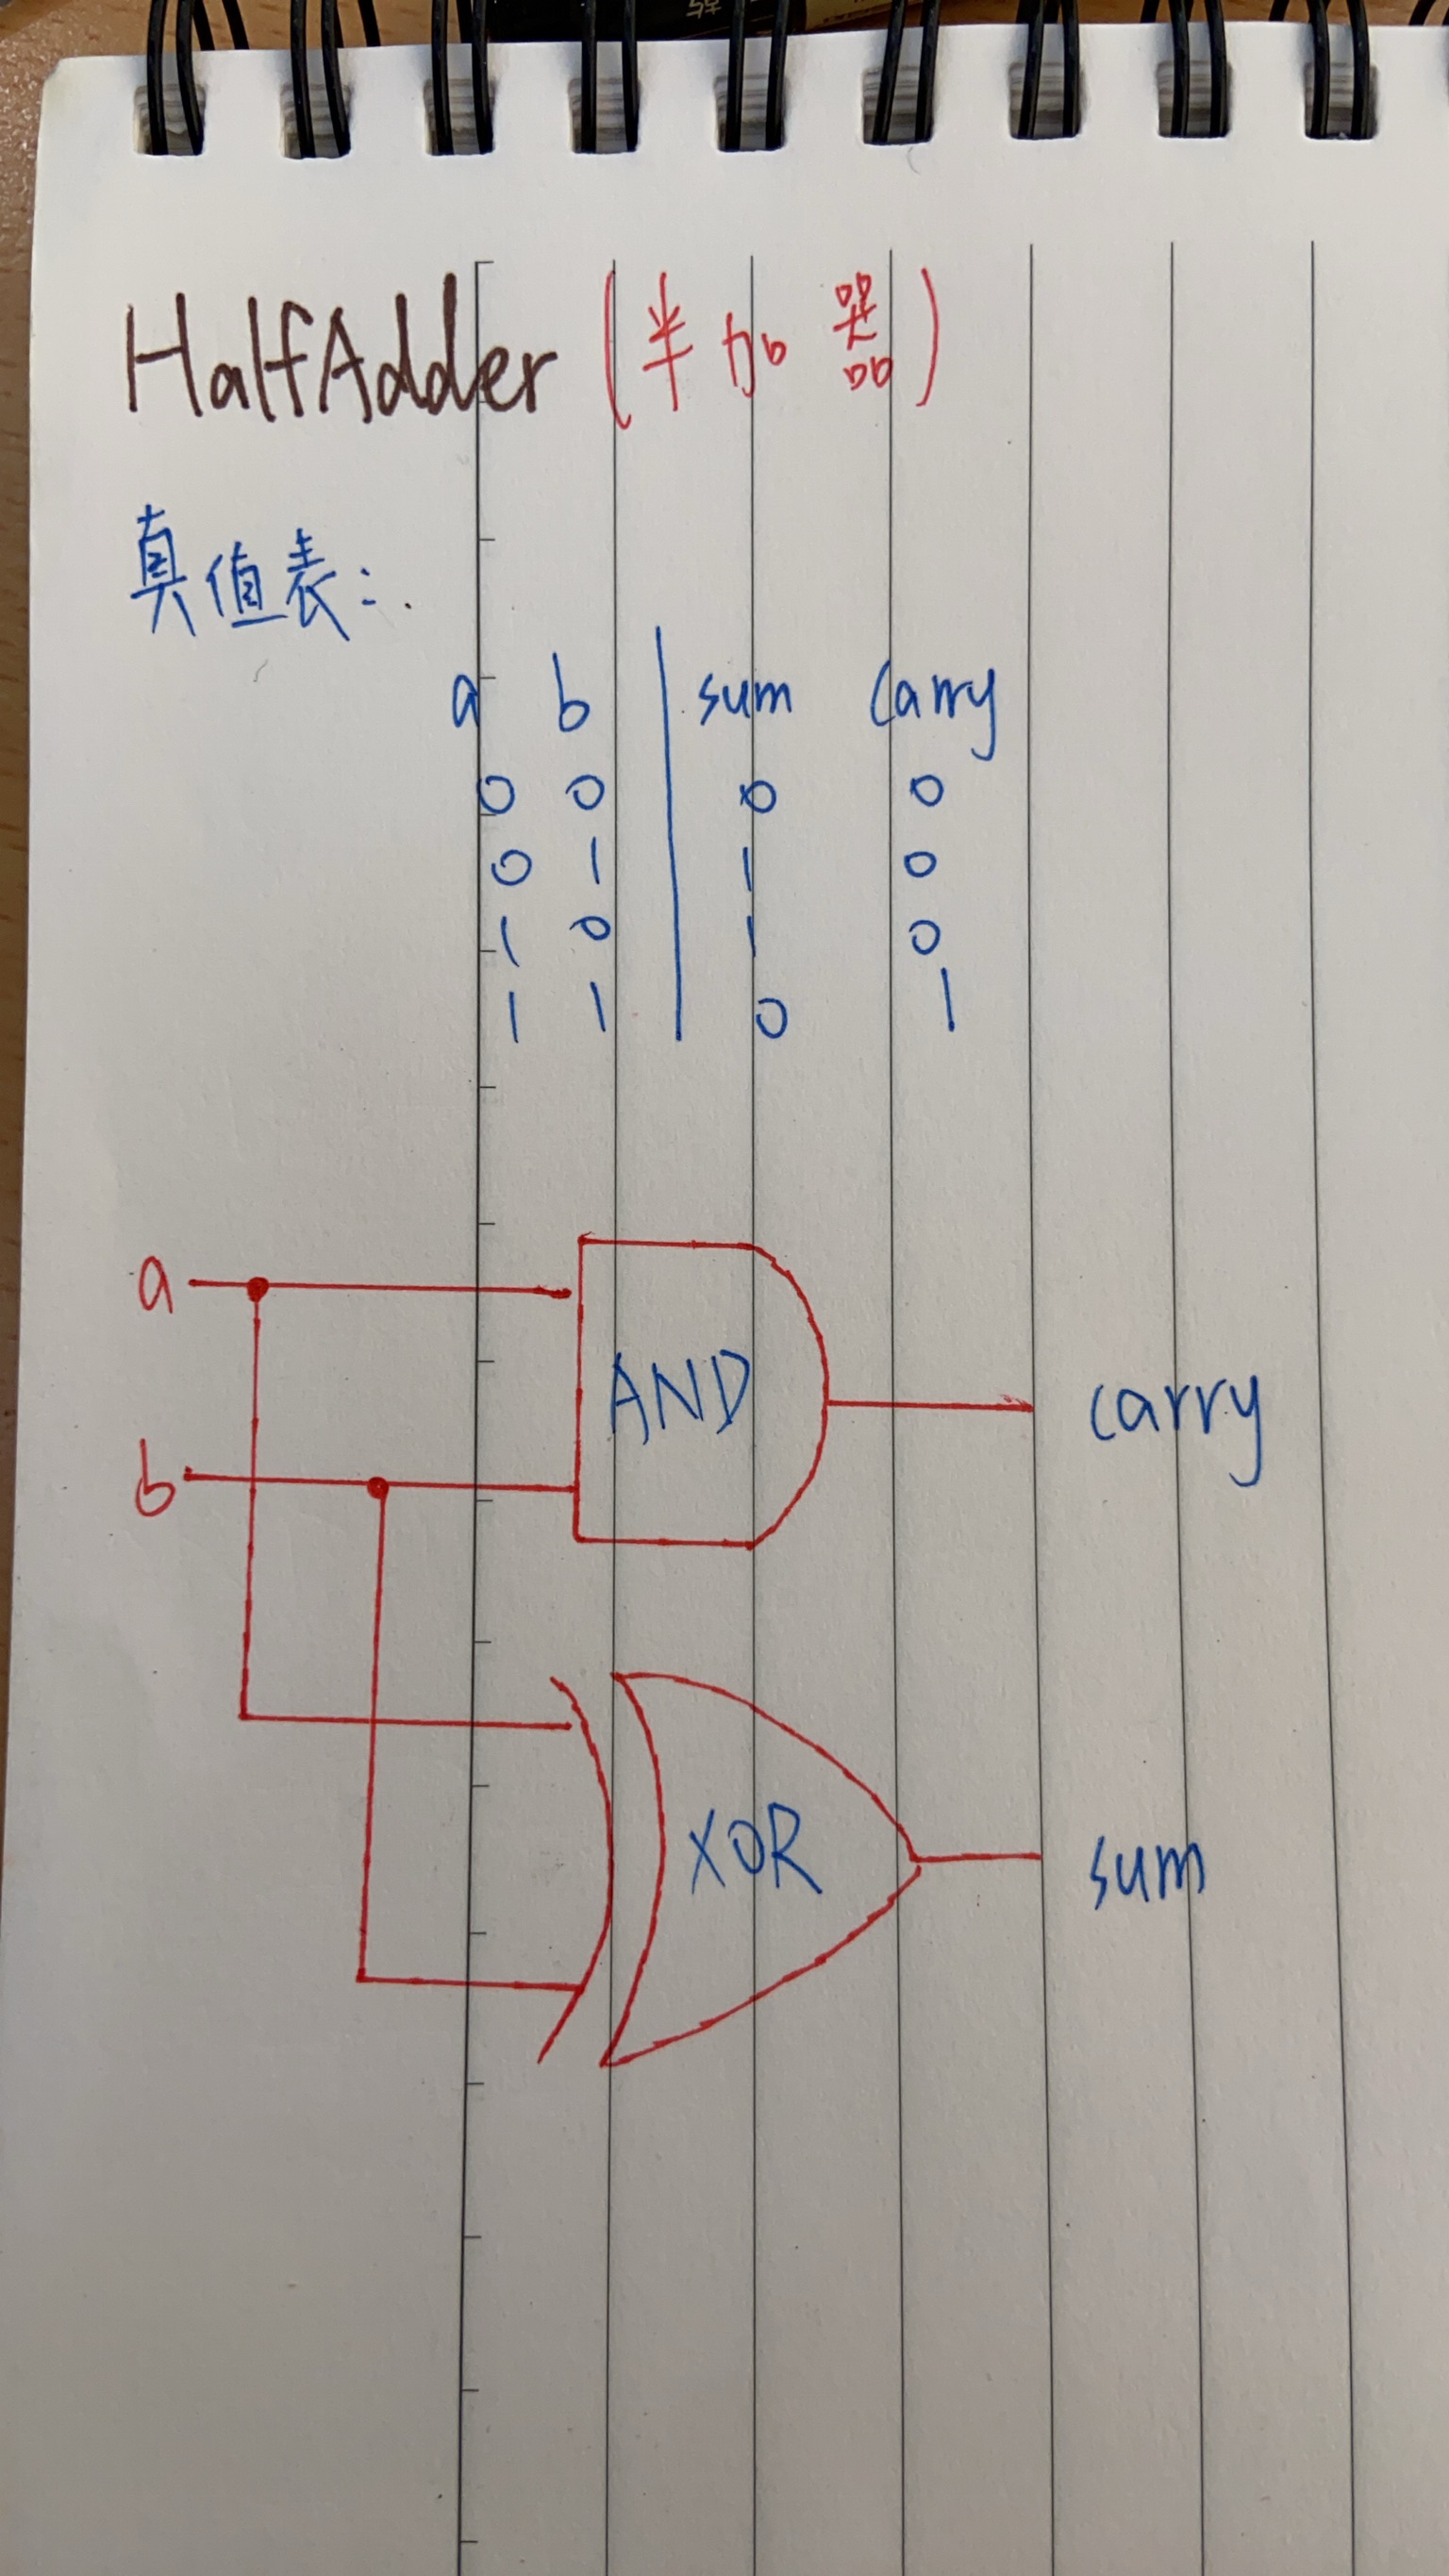 HalfAdder (半加器)
真值表:
a b | sum carry
0 0 | 0 0
0 1 | 1 0
1 0 | 1 0
1 1 | 0 1
a
AND
carry
b
XOR
sum